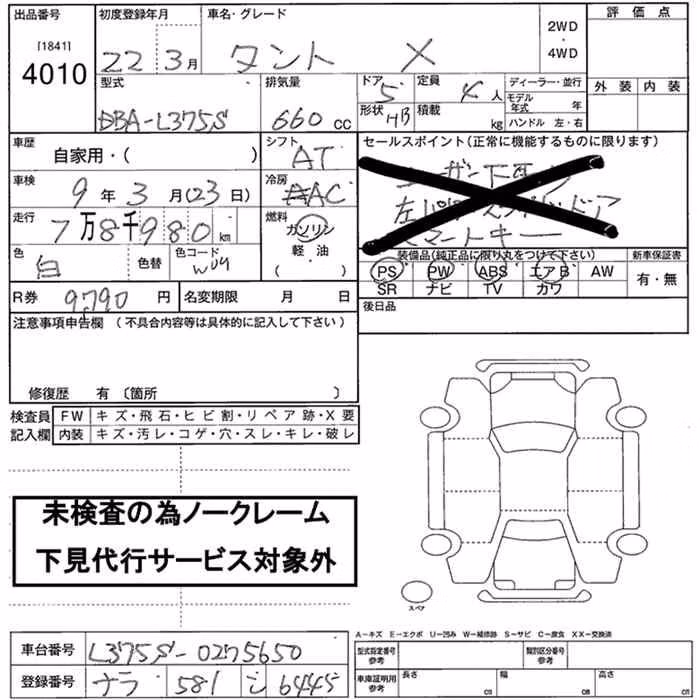 出品番号 初度登録年月 車名・グレード 評価点
[1841]
4010
22年3月 タント X
2WD
・
4WD
外装 内装
型式 排気量 ドア 定員 ディーラー・並行
DBA-L375S 660cc 5 4人
形状 HB 積載 kg
モデル年式 年
ハンドル 左・右
車歴 自家用・( )
シフト AT
セールスポイント(正常に機能するものに限ります)
車検 9年3月(23日)
冷房 AAC
走行 7万8千980km
燃料 ガソリン
軽・油
( )
スマートキー
色 白 色替 色コード W09
装備品(純品に限り丸をつけて下さい) 新車保証書
PS PW ABS エアB AW 有・無
SR ナビ TV カワ
R券 9790円 名変期限 月 日
後日品
注意事項申告欄 (不具合内容等は具体的に記入して下さい)
修復歴 有 〔箇所 〕
検査員記入欄
FW キズ・飛石・ヒビ割・リペア跡・X要
内装 キズ・汚レ・コゲ・穴・スレ・キレ・破レ
未検査の為ノークレーム
下見代行サービス対象外
スペア
A-キズ E-エクボ U-凹み W-補修跡 S-サビ C-腐食 XX-交換済
車台番号 L375S-0275650
登録番号 ナラ 581 シ 6445
型式指定番号参考 類別区分番号参考
車庫証明用参考 長さ cm 幅 cm 高さ cm